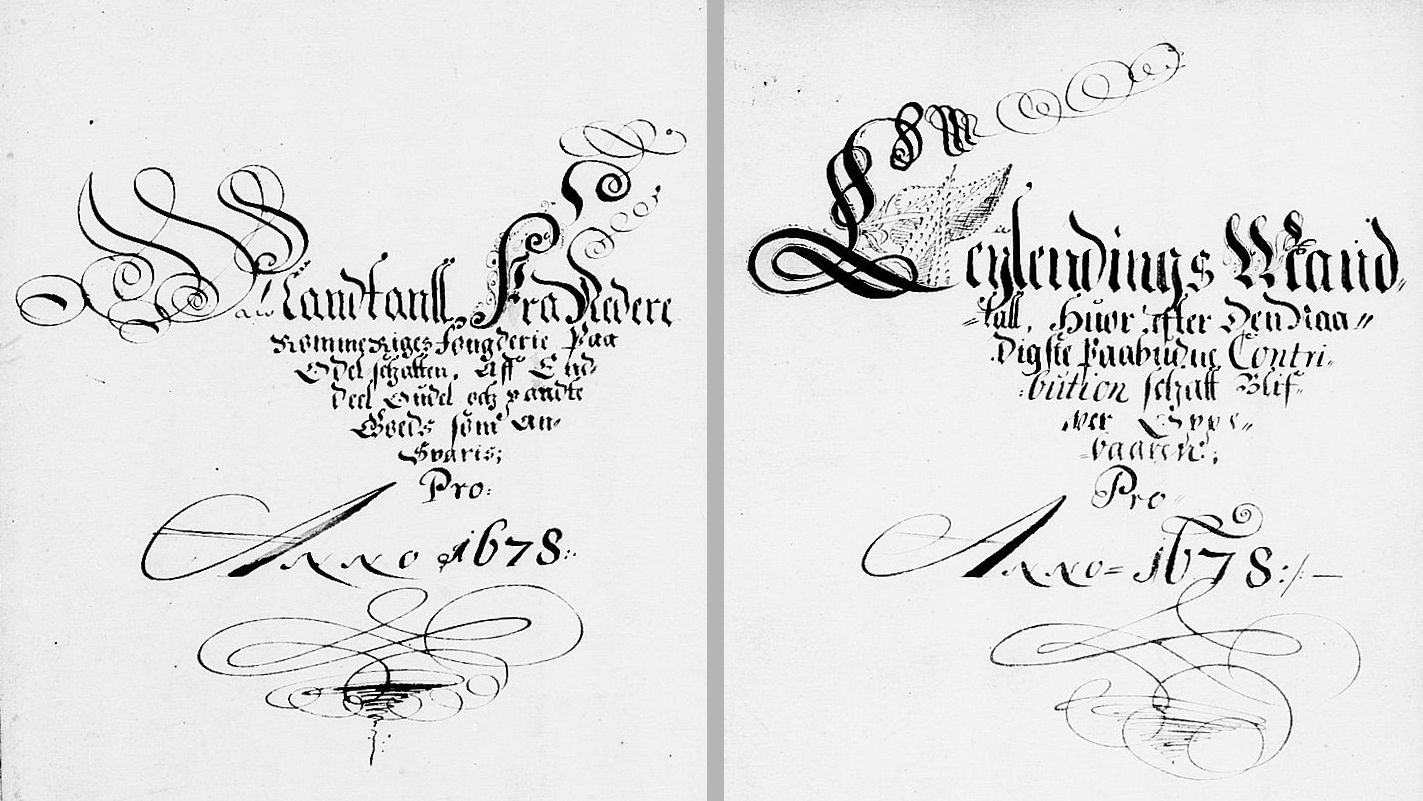 Mandtall, Fra Nedere
Rommeriges fougderie Paa
Odel schatten, Aff End-
deel Oudel och pandte
Goeds som An-
Svaris;
Pro:
Anno 1678:
Leylendings Mand-
tall, Huor efter Den Naa-
digste Paabudne Contri-
bution schatt Blif-
ver Oppe-
baaren:
Pro
Anno= 1678:/:—